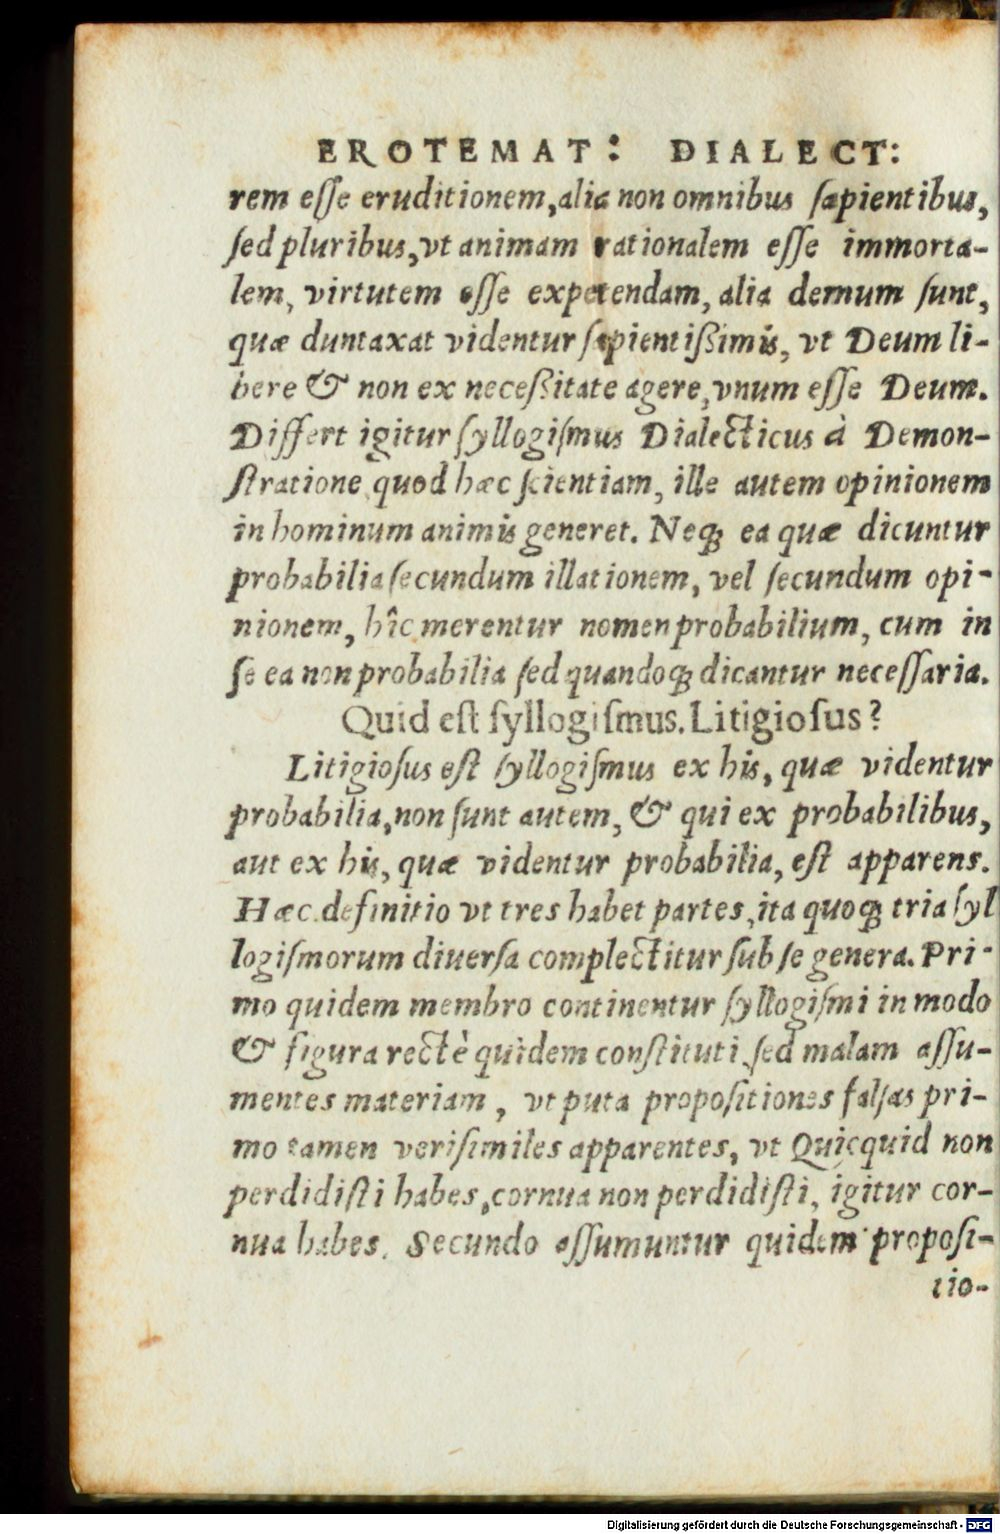 EROTEMAT: DIALECT:
rem eſſe eruditionem, alia non omnibus ſapientibus,
ſed pluribus, vt animam rationalem eſſe immorta-
lem, virtutem eſſe expetendam, alia demum ſunt,
quæ duntaxat videntur ſapientißimis, vt Deum li-
bere & non ex neceßitate agere, vnum eſſe Deum.
Differt igitur ſyllogiſmus Dialecticus à Demon-
ſtratione quod hæc ſcientiam, ille autem opinionem
in hominum animis generet. Neqꝫ ea quæ dicuntur
probabilia ſecundum illationem, vel ſecundum opi-
nionem, hîc merentur nomen probabilium, cum in
ſe ea non probabilia ſed quandoqꝫ dicantur neceſſaria.
Quid eſt ſyllogiſmus. Litigioſus?
Litigioſus eſt ſyllogiſmus ex his, quæ videntur
probabilia, non ſunt autem, & qui ex probabilibus,
aut ex his, quæ videntur probabilia, eſt apparens.
Hæc definitio vt tres habet partes, ita quoqꝫ tria ſyl
logiſmorum diuerſa complectitur ſub ſe genera. Pri-
mo quidem membro continentur ſyllogiſmi in modo
& figura rectè quidem conſtituti ſed malam aſſu-
mentes materiam, vt puta propoſitiones falſas pri-
mo tamen veriſimiles apparentes, vt Quicquid non
perdidiſti habes, cornua non perdidiſti, igitur cor-
nua habes. Secundo aſſumuntur quidem propoſi-
tio-
Digitalisierung gefördert durch die Deutsche Forschungsgemeinschaft - DFG